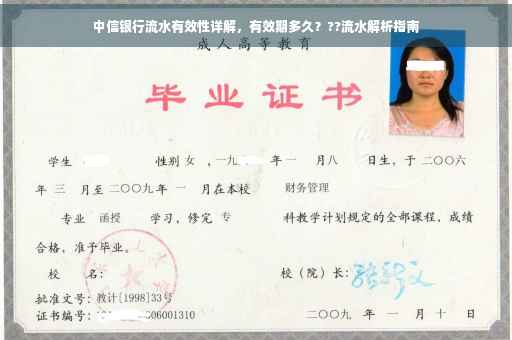 中信银行流水有效性详解，有效期多久？??流水解析指南
成人高等教育
毕业证书
学生 性别 女 ，一九 年 一 月 八 日生，于 二〇〇六
年 三 月至 二〇〇九 年 一 月在本校 财务管理
专业 函授 学习，修完 专 科教学计划规定的全部课程，成绩
合格，准予毕业。
校 名： 校（院）长：
批准文号：教计[1998]33号
证书编号： 06001310 二〇〇九 年 一 月 十 日